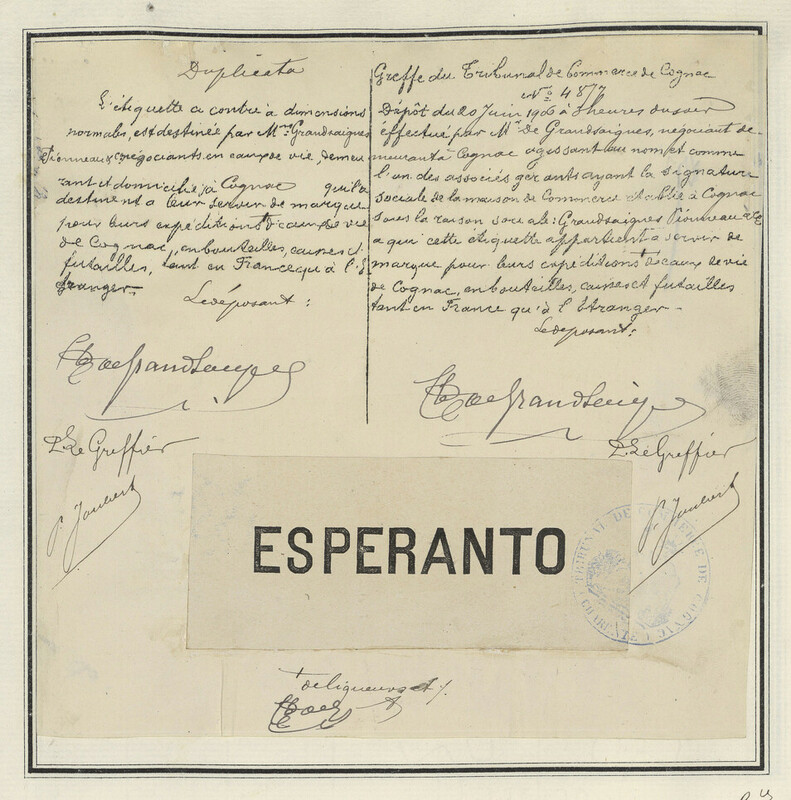 Duplicata
L'étiquette ci contre à dimensions
normales, est destinée par Mrs Grandsaignes
Pionneau & Co négociants en eaux de vie, demeu
rant et domiciliés à Cognac qu'ils
destinent à leur servir de marque
pour leurs expéditions d'eaux de vie
de Cognac, en bouteilles, caisses et
futailles, tant en France qu'à l'É
tranger.
Le déposant:
de Grandsaignes
P. Le Greffier
P. Joubert
Greffe du Tribunal de Commerce de Cognac
No 4817
Dépôt du 20 Juin 1906 à heures du soir
effectué par Mr de Grandsaignes, négociant de-
meurant à Cognac agissant au nom et comme
l'un des associés gérants ayant la signature
sociale de la maison de Commerce établie à Cognac
sous la raison sociale: Grandsaignes Pionneau & Co
à qui cette étiquette appartient à servir de
marque pour leurs expéditions d'eaux de vie
de Cognac, en bouteilles, caisses et futailles
tant en France qu'à l'Étranger.
Le déposant:
de Grandsaignes
P. Le Greffier
P. Joubert
ESPERANTO
TRIBUNAL DE COMMERCE DE COGNAC
CHARENTE
+ de liqueurs et /.